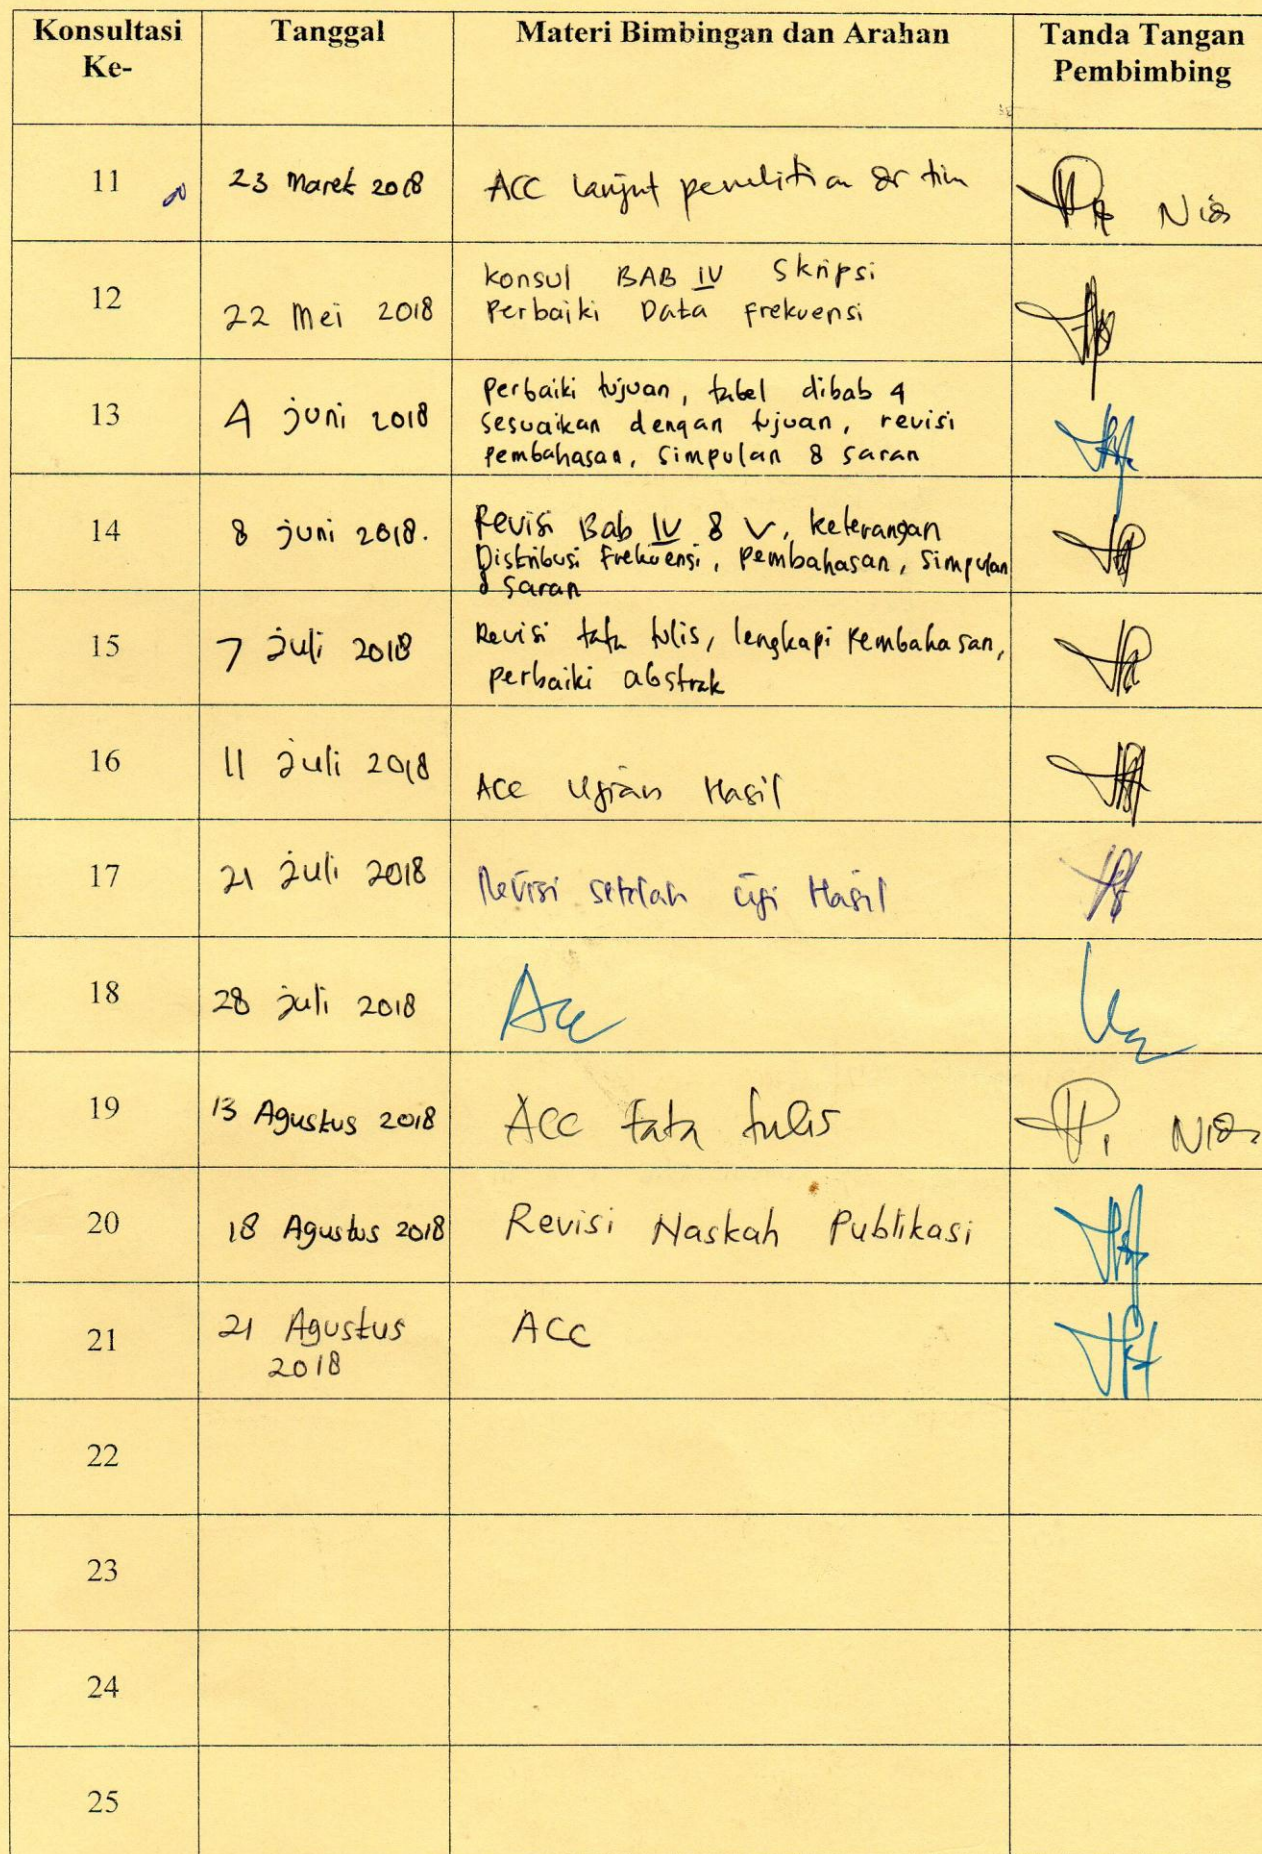 Konsultasi Ke- Tanggal Materi Bimbingan dan Arahan Tanda Tangan Pembimbing
11 23 Maret 2018 ACC lanjut penelitian tim Nia
12 22 Mei 2018 konsul BAB IV Skripsi
Perbaiki Data Frekuensi
13 4 juni 2018 Perbaiki tujuan, tabel dibab 4
sesuaikan dengan tujuan, revisi
pembahasan, simpulan & saran
14 8 juni 2018. Revisi Bab IV & V, keterangan
Distribusi Frekuensi, Pembahasan, Simpulan
& saran
15 7 juli 2018 Revisi tata tulis, lengkapi Pembahasan,
perbaiki abstrak
16 11 juli 2018 ACC Ujian Hasil
17 21 juli 2018 Revisi setelah uji Hasil
18 28 juli 2018 Acc
19 13 Agustus 2018 ACC tata tulis Nia
20 18 Agustus 2018 Revisi Naskah Publikasi
21 21 Agustus 2018 ACC
22
23
24
25